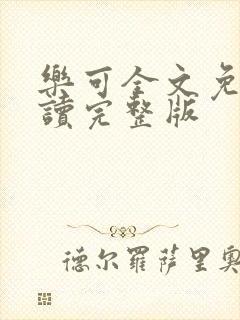 樂可全文免
讀完整版
德尔羅萨里奧